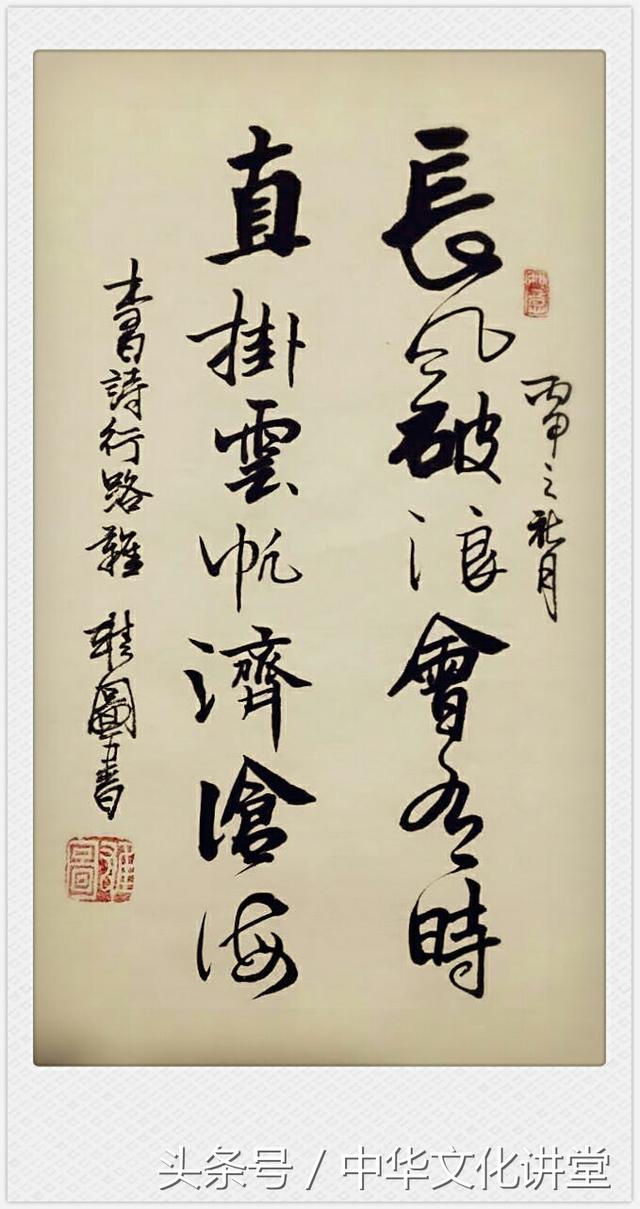 丙申之秋月
長風破浪會有時
直掛雲帆濟滄海
詩行路難 圖書
头条号 / 中华文化讲堂